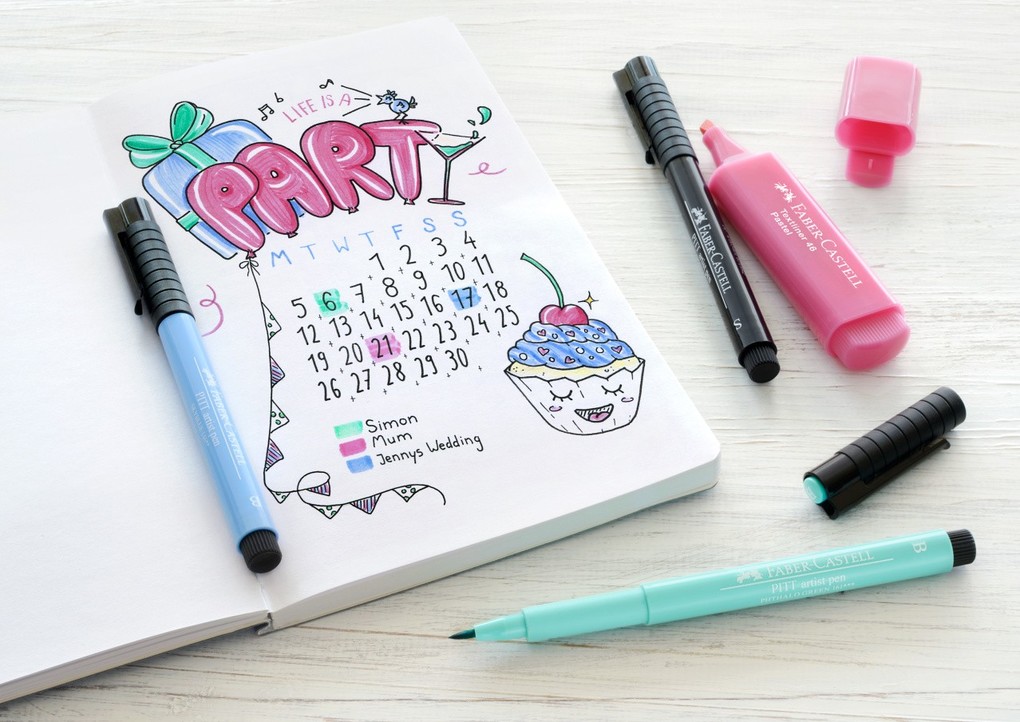 LIFE IS A
PARTY
M T W T F S S
1 2 3 4
5 6 7 8 9 10 11
12 13 14 15 16 17 18
19 20 21 22 23 24 25
26 27 28 29 30
Simon
Mum
Jennys Wedding
FABER-CASTELL
PITT artist pen
B
FABER-CASTELL
S
FABER-CASTELL
Textliner 46
Pastel
FABER-CASTELL
PITT artist pen
PHTHALO GREEN
B